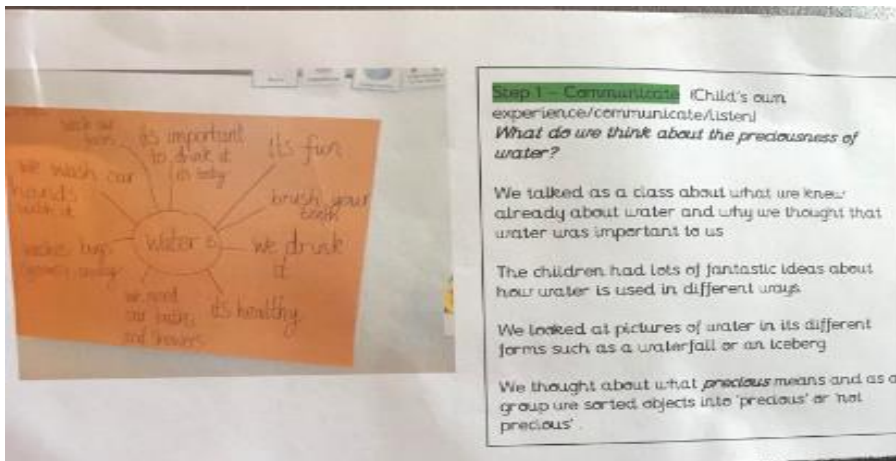 its important
to drink it
its fun
we wash our
hands with it
brush your
teeth
water is
we drink
it
washes bugs
away
we need
our baths
and showers
its healthy
Step 1 – Communicate (Child's own
experience/communicate/listen)
What do we think about the preciousness of
water?
We talked as a class about what we knew
already about water and why we thought that
water was important to us
The children had lots of fantastic ideas about
how water is used in different ways
We looked at pictures of water in its different
forms such as a waterfall or an iceberg
We thought about what precious means and as a
group we sorted objects into 'precious' or 'not
precious'